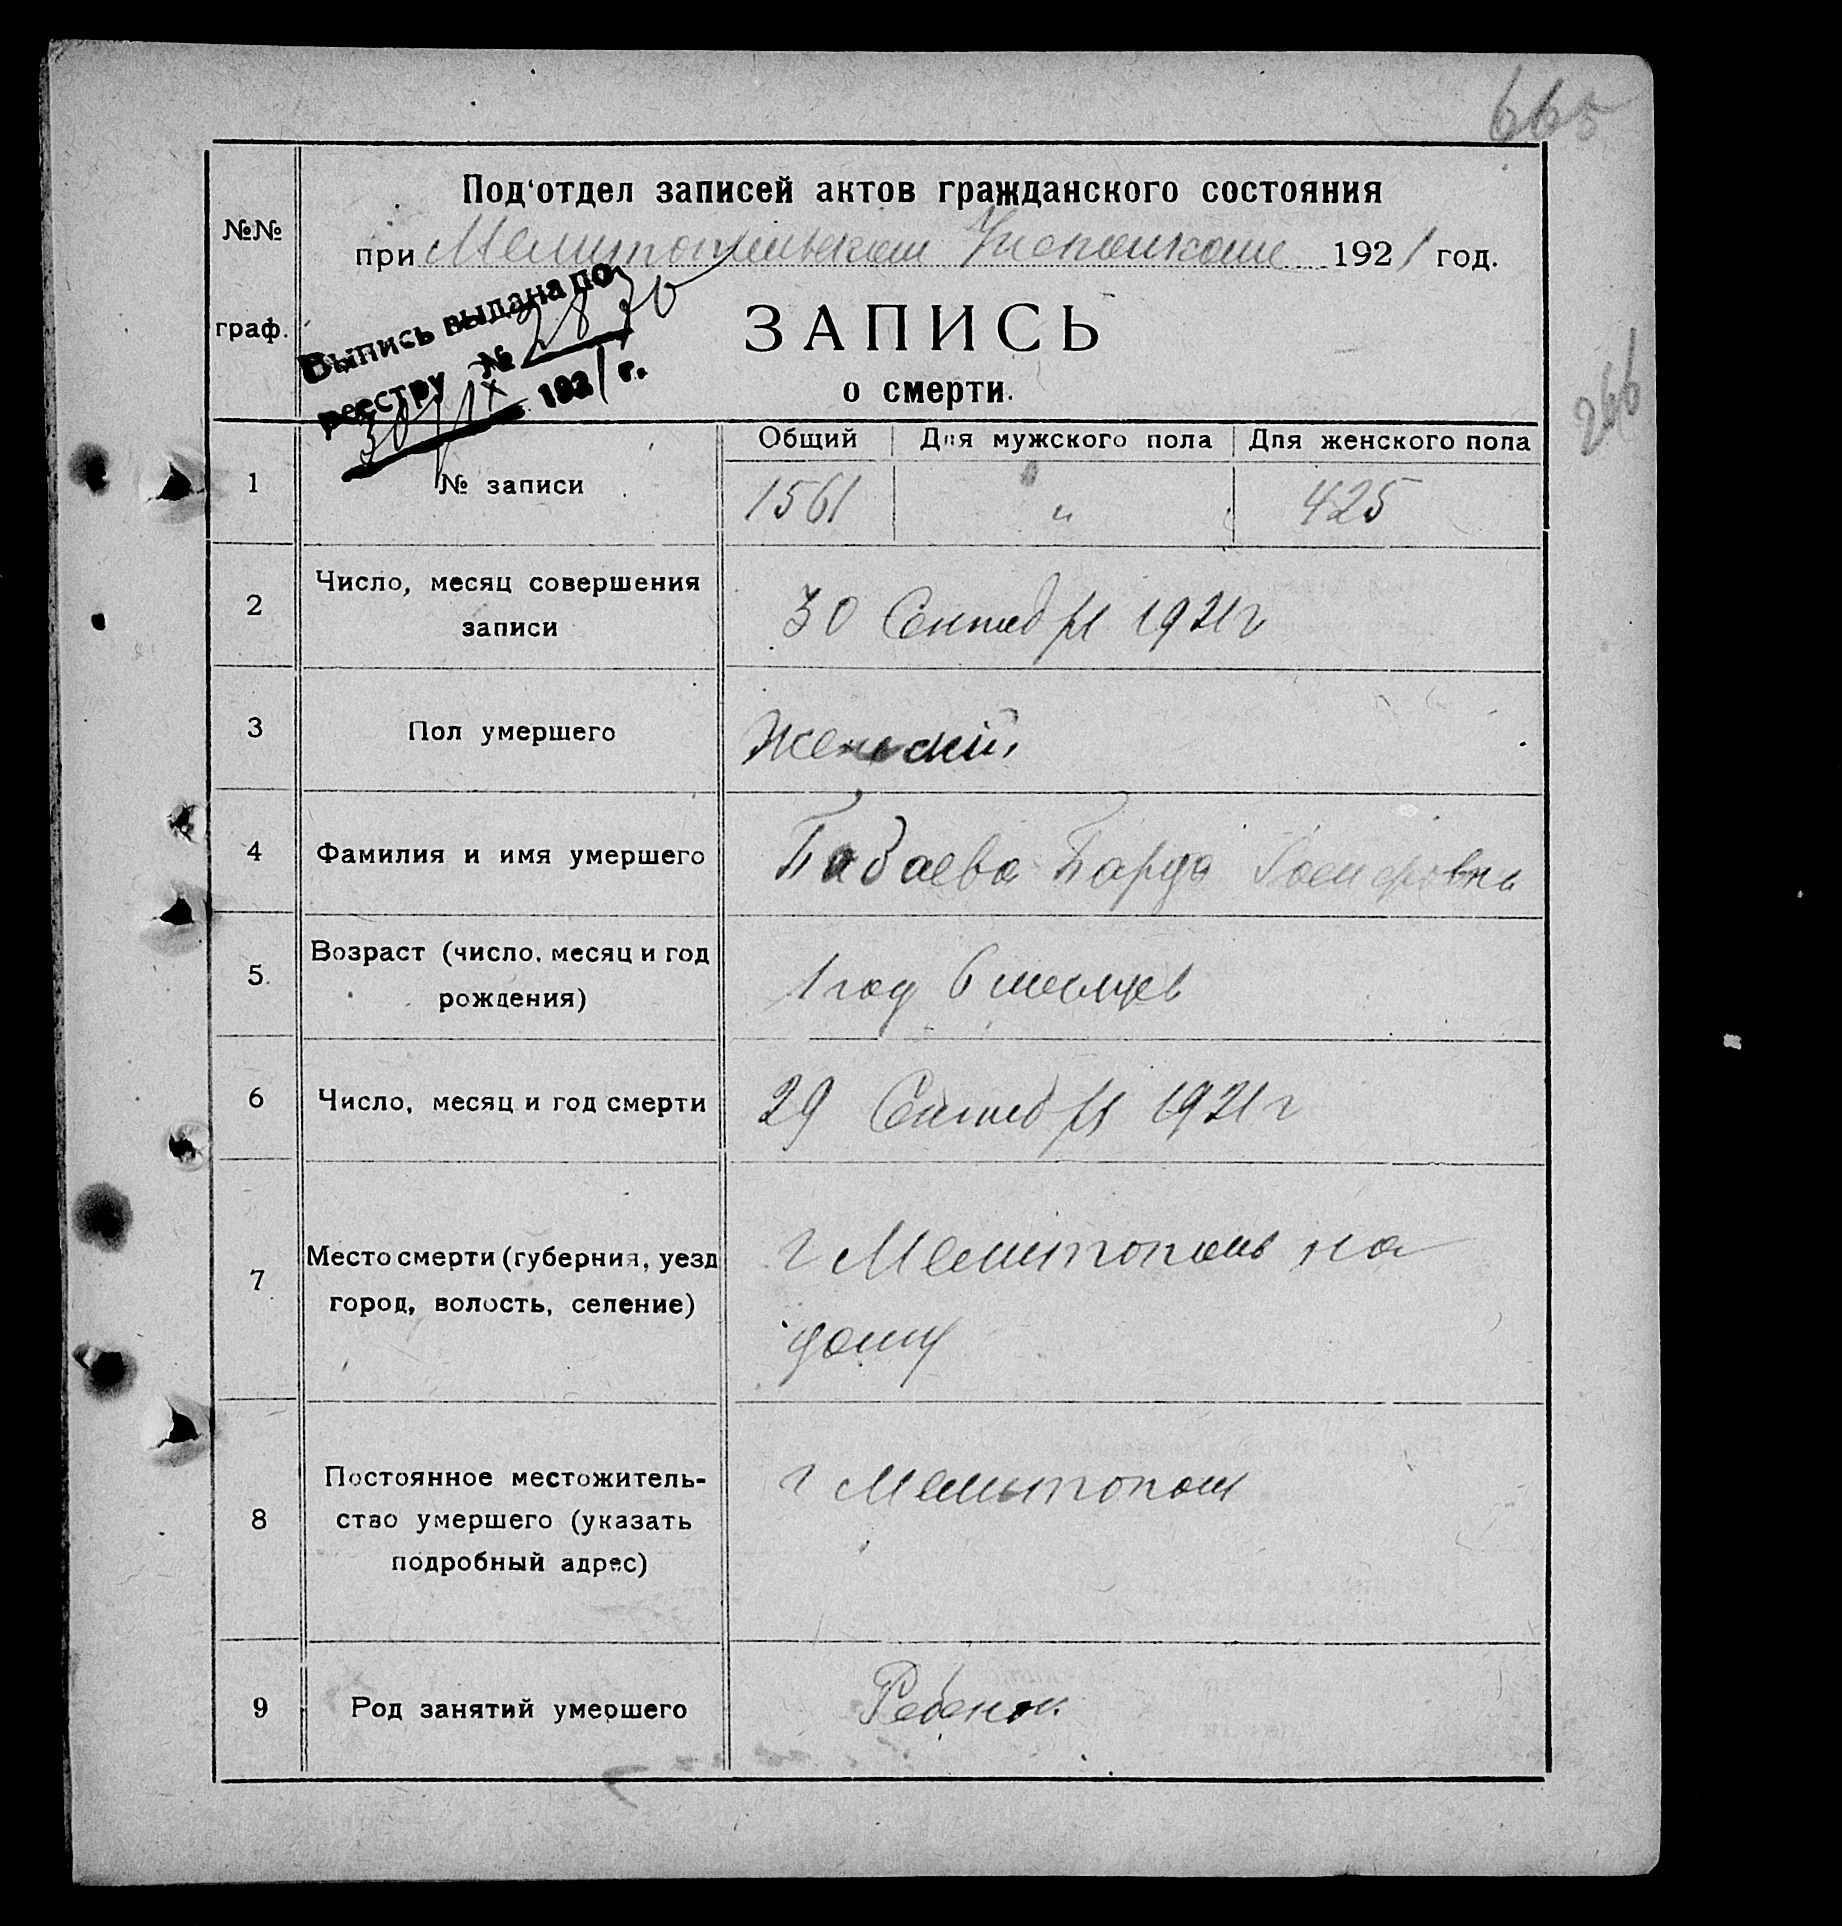 665
Под‘отдел записей актов гражданского состояния
№№
при Мелитопольском Уисполкоме 1921 год.
Выпись выдана по
реестру № 2830
30/IX 1921 г.
граф.
ЗАПИСЬ
о смерти.
266
Общий Для мужского пола Для женского пола
1 № записи 1561 " 425
Число, месяц совершения
2 30 Сентября 1921 г
записи
3 Пол умершего Женский
4 Фамилия и имя умершего Бабаева
Возраст (число, месяц и год
5. 1 год 6 месяцев
рождения)
6 Число, месяц и год смерти 29 Сентября 1921 г
Место смерти (губерния, уезд г Мелитополь на
7
город, волость, селение) дому
Постоянное местожитель- г Мелитополь
8 ство умершего (указать
подробный адрес)
9 Род занятий умершего Ребенок